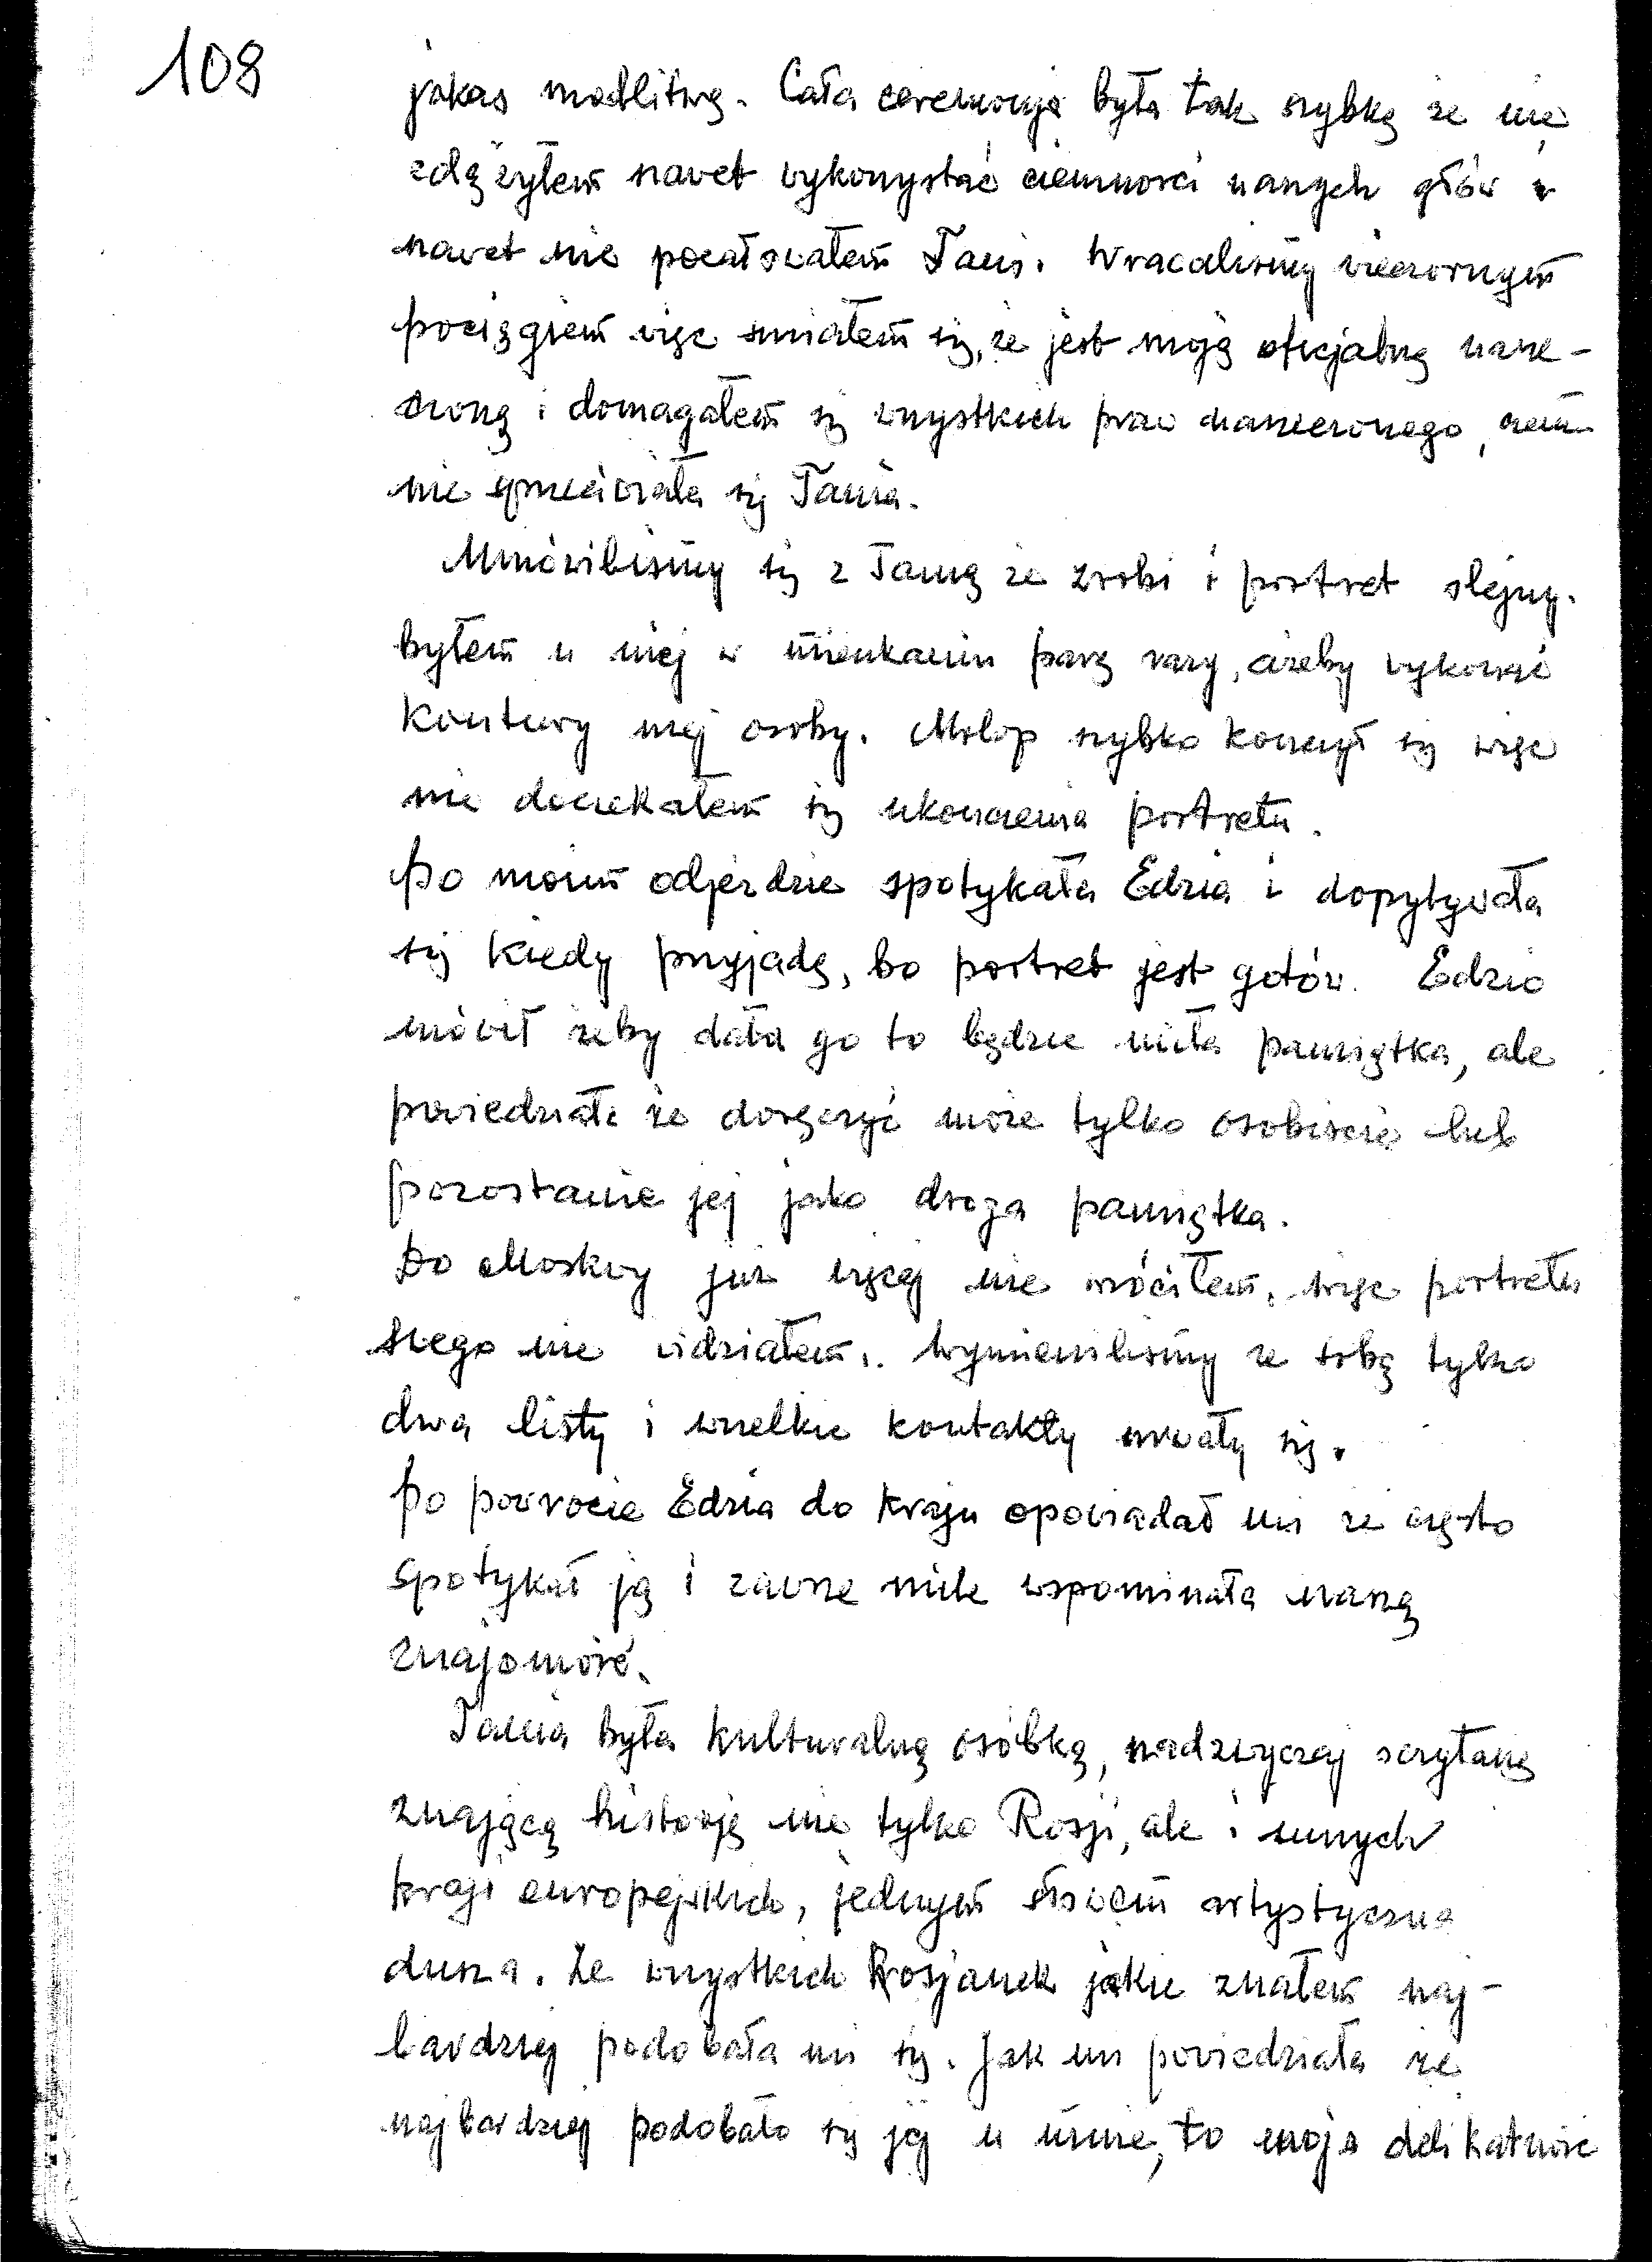 108
jakąś modlitwę. Cała ceremonja była tak szybką że nie
zdążyłem nawet wykorzystać ciemności naszych głów i
nawet nie pocałowałem Tani. Wracaliśmy wieczornym
pociągiem więc śmiałem się, że jest moją oficjalną narze-
czoną i domagałem się wszystkich praw narzeczonego, czem
nie sprzeciwiała się Tania.
Umówiliśmy się z Tanią że zrobi i portret olejny.
byłem u niej w mieszkaniu parę razy, ażeby wykonać
kontury mej osoby. Urlop szybko kończył się więc
nie doczekałem się ukończenia portretu.
Po moim odjeździe spotykała Edzia i dopytywała
się kiedy przyjadę, bo portret jest gotów. Edzio
mówił żeby dała go to będzie miła pamiątka, ale
powiedziała że doręczyć może tylko osobiście lub
pozostanie jej jako droga pamiątka.
Do Moskwy już więcej nie wróciłem, więc portretu
swego nie widziałem. Wymieniliśmy ze sobą tylko
dwa listy i wszelkie kontakty urwały się.
Po powrocie Edzia do kraju opowiadał mi że często
spotykał ją i zawsze mile wspominała naszą
znajomość.
Tania była kulturalną osóbką, nadzwyczaj oczytaną
znającą historję nie tylko Rosji, ale i innych
kraji europejskich, jednym słowem artystyczna
dusza. Ze wszystkich Rosjanek jakie znałem naj-
bardziej podobała mi się. Jak mi powiedziała że
najbardziej podobało się jej u mnie, to moja delikatność